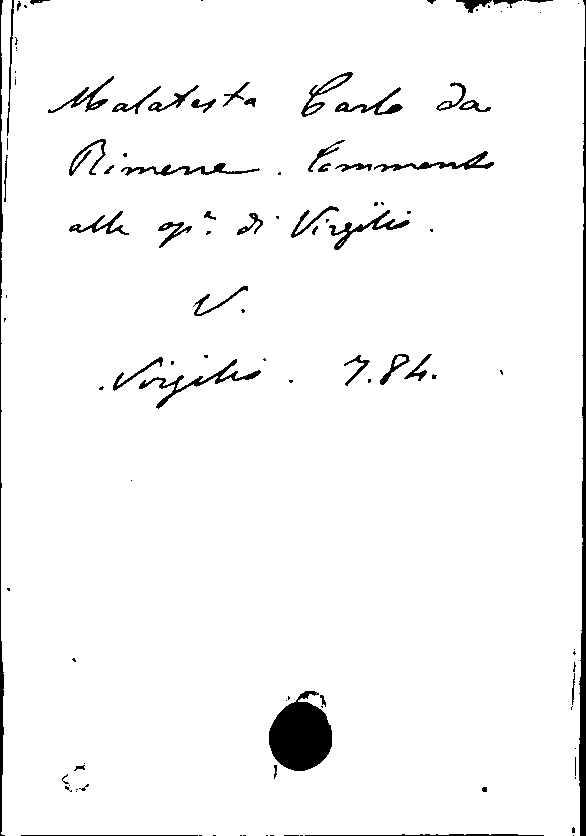 Malatesta Carlo da
Rimene. Commento
alle op.e di Virgilio.
V.
Virgilio. 7.84.